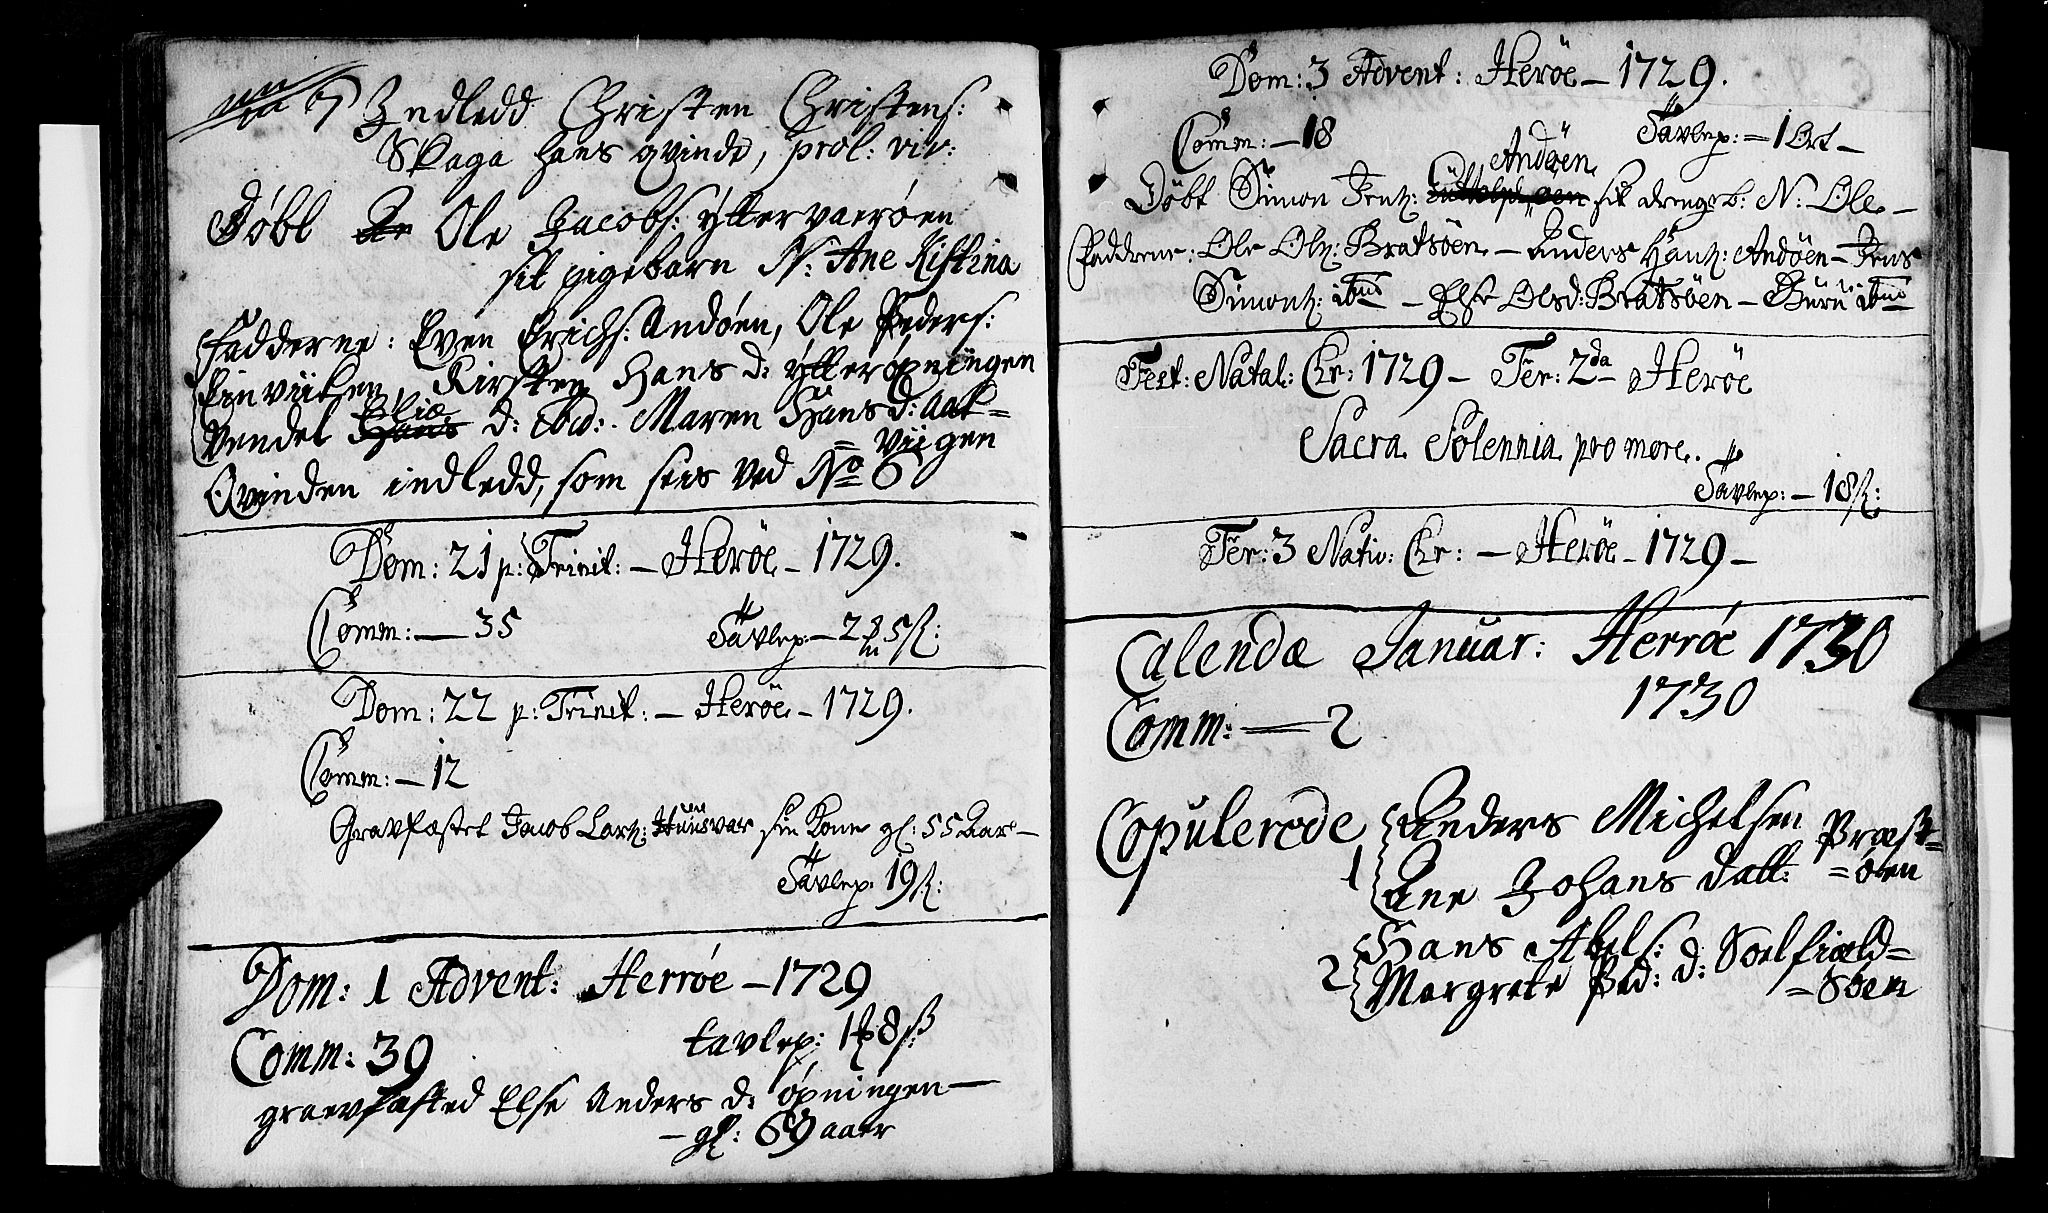 Indledd Christen Christens:
Skaga hans qvinde, prol: vir:
Døbt Ole Jacobs: ytter vaerøen
sit pigebarn N: Ane Kistina
Fadderne: Even Erichs: Andøen, Ole Peders:
Einviiken, Kirsten Hans d: ytterøpningen
Eliæ
Vendel Hans d: ibid: Maren Hans d: aak=
viigen
Qvinden indledd, som sees ved No 6
Dom: 21 p: Trinit: – Herøe – 1729.
Comm: – 35 Tavlep: – 2 5ß:
Dom: 22 p: Trinit: – Herøe – 1729.
Comm: – 12
Gravfæstet Jacob Lars: Huusvær sin Kone gl: 55 Aar –
Tavlep: 19ß:
Dom: 1 Advent: Herrøe – 1729
Comm: 39 tavlep: 1 8ß:
graevfæsted Else Anders d: øpningen –
– gl: 69 aaer
Dom: 3 Advent: Herøe – 1729.
Comm: – 18 Tavlep: = 1 Ort –
Andøen
Døbt Simon Jens: sit drengeb: N: Ole –
Faddrene: Ole Ols: Bratsöen – Anders Hans: Andöen – Jens
Simons: ibid – Else Olsd: Bratsöen – Guru ibid
Fest: Natal: Chr: 1729 – Fer: 2da Herøe
Sacra Solennia pro more.
Tavlep: – 18ß:
Fer: 3 Nativ: Chr: – Herøe – 1729 –
Calendæ Januar: Herrøe 1730
1730
Comm: — 2
Copulerede Anders Michelsen Præst=
1 Ane Johans datt: =øen
Hans Abels:
2 Margrete Ped: d: Soelfiæld=
=Søen